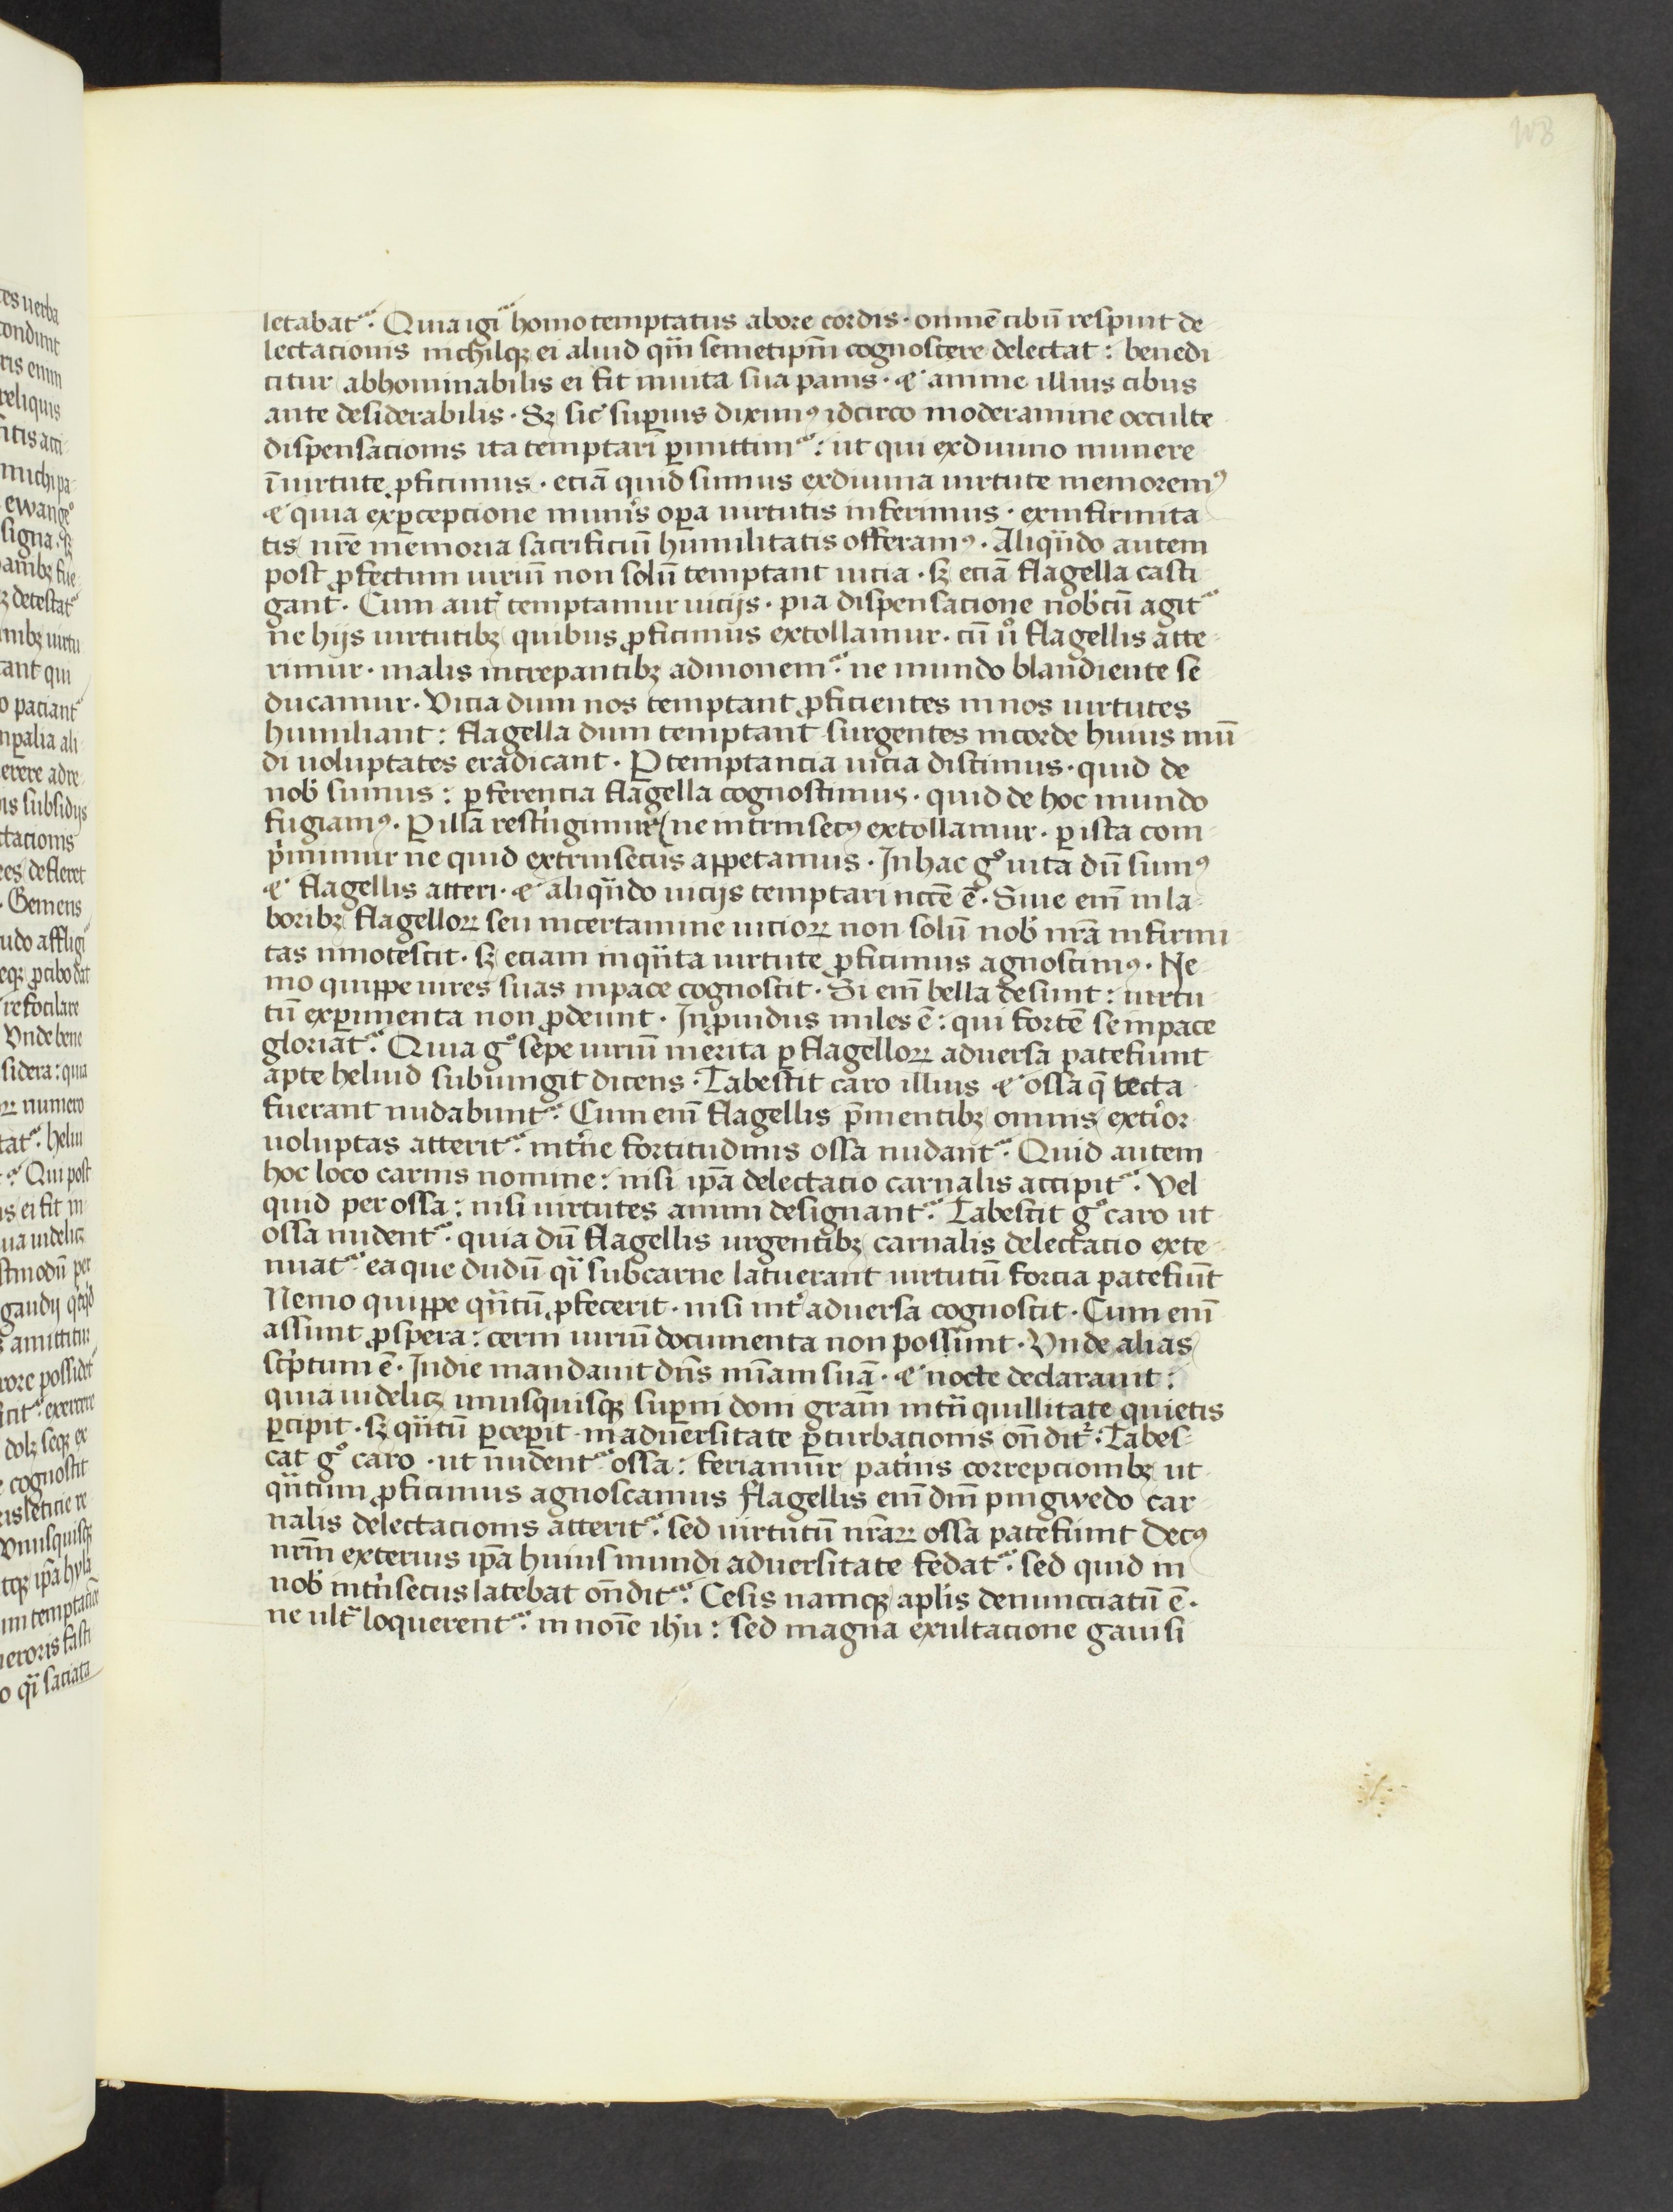 108
letabat᷑. Quia igi᷑ homo temptatus ab ore cordis · omnē cibū respuit de
lectacionis nichilqꝫ ei aliud quā semetipm̄ cognoscere delectat : benedi
citur abhominabilis ei fit in uita sua panis · ⁊ anime illius cibus
ante desiderabilis · Sꝫ sic̄ suꝑius diximꝰ idcirco moderamine occulte
dispensacionis ita temptari ꝑmittim᷑ : ut qui ex diuino munere
ī uirtute ꝓficimus · eciā quid simus ex diuina uirtute memoremꝰ
⁊ quia ex ꝑcepcione munīs oꝑa uirtutis inferimus · ex infirmita
tis nr̄e memoria sacrificiū humilitatis offeramꝰ · Aliqūdo autem
post ꝓfectum uiriū non solū temptant uicia · sꝫ eciā flagella casti
gant · Cum aut̄ temptamur uicijs · pia dispensacione nob̄cū agit᷑
ne hijs uirtutibꝫ quibus ꝓficimus extollamur · cū ủ flagellis atte
rimur · malis increpantibꝫ admonem᷑ · ne mundo blandiente se
ducamur · Vicia dum nos temptant ꝓficientes in nos uirtutes
humiliant : flagella dum temptant surgentes in corde huius mū
di uoluptates eradicant · Ꝑ temptancia uicia discimus · quid de
nob̄ simus : ꝑ ferencia flagella cognoscimus · quid de hoc mundo
fugiamꝰ · Ꝑ illa restrīgimur ne intrinsecꝰ extollamur · ꝑ ista com
pⁱmimur ne quid extrinsecus appetamus · In hac gͦ uita dū sumꝰ
⁊ flagellis atteri · ⁊ aliqūdo uicijs temptari nccē ē · Siue enī in la
boribꝫ flagelloꝝ seu in certamine uicioꝝ non solū nob̄ nr̄a infirmi
tas innotescit · sꝫ eciam in qūta uirtute ꝓficimus agnoscimꝰ · Ne
mo quippe uires suas in pace cognoscit · Si enī bella desunt : uirtu
tū exꝑimenta non ꝓdeunt · Inꝓuidus miles ē : qui fortē se in pace
gloriat᷑ · Quia gͦ sepe uiriū merita ꝑ flagelloꝝ aduersa patefiunt
apte heliud subiungit dicens · Tabescit caro illius ⁊ ossa q̄ tecta
fuerant nudabunt᷑ · Cum enī flagellis p̄mentibꝫ omnis extⁱor
uoluptas atterit᷑ · int̄ne fortitudinis ossa nudant᷑ · Quid autem
hoc loco carnis nomine : nisi ip̄a delectacio carnalis accipit᷑ · Vel
quid per ossa : nisi uirtutes animi designant᷑ · Tabescit gͦ caro ut
ossa nudent᷑ · quia dū flagellis urgentibꝫ carnalis delectacio exte
nuat᷑ · ea que dudū qᷓi sub carne latuerant uirtutū forcia patefiūt
Nemo quippe qūtū ꝓfecerit · nisi int̄ aduersa cognoscit · Cum enī
assunt ꝓspera : cerni uiriū documenta non possunt · Vnde alias
scⁱptum ē · In die mandauit dn̄s mīam suā · ⁊ nocte declarauit :
quia uidelicꝫ unusquisqꝫ suꝑni doni grām in tūquillitate quietis
ꝑcipit · sꝫ qūtū ꝑceꝑit · in aduersitate ꝑturbacionis on̄dit᷑ · Tabes
cat gͦ caro · ut nudent᷑ ossa : feriamur patⁱnis correpcionibꝫ ut
qūtum ꝓficimus agnoscamus flagellis enī dnī pingwedo car
nalis delectacionis atterit᷑ · sed uirtutū nr̄aꝝ ossa patefiunt Decꝰ
nr̄m exterius ip̄a huius mundi aduersitate fedat᷑ · sed quid in
nob̄ intⁱnsecus latebat on̄dit᷑ · Cesis namqꝫ apl̄is denuncciatū ē ·
ne ult᷑ loquerent᷑ · in noīe ih̄u : sed magna exultacione gauisi